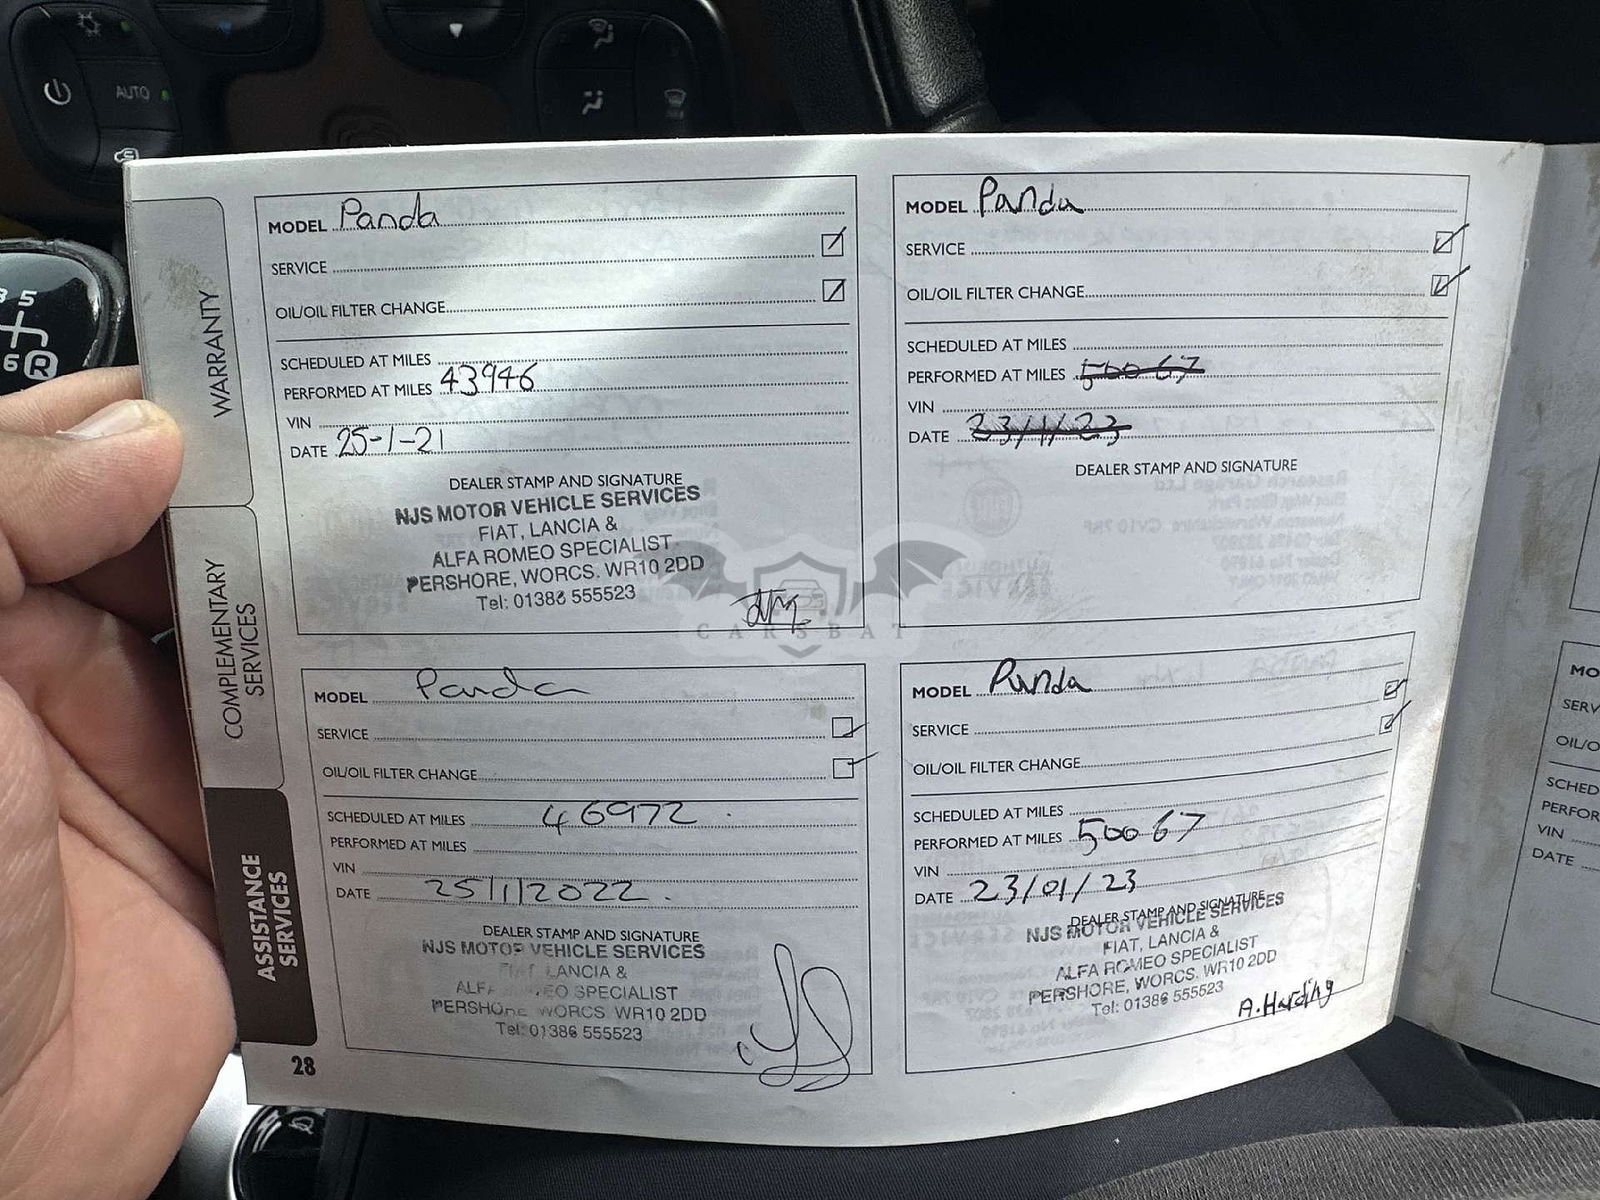 AUTO
3 5
6 R
WARRANTY
COMPLEMENTARY
SERVICES
ASSISTANCE
SERVICES
MODEL Panda
SERVICE
OIL/OIL FILTER CHANGE
SCHEDULED AT MILES
PERFORMED AT MILES 43946
VIN
DATE 25-1-21
DEALER STAMP AND SIGNATURE
NJS MOTOR VEHICLE SERVICES
FIAT, LANCIA &
ALFA ROMEO SPECIALIST
PERSHORE, WORCS. WR10 2DD
Tel: 01386 555523
MODEL Panda
SERVICE
OIL/OIL FILTER CHANGE
SCHEDULED AT MILES
PERFORMED AT MILES 50067
VIN
DATE 23/1/23
DEALER STAMP AND SIGNATURE
CARSBAT
MODEL Panda
SERVICE
OIL/OIL FILTER CHANGE
SCHEDULED AT MILES 46972
PERFORMED AT MILES
VIN
DATE 25/1/2022.
DEALER STAMP AND SIGNATURE
NJS MOTOR VEHICLE SERVICES
FIAT, LANCIA &
ALFA ROMEO SPECIALIST
PERSHORE, WORCS. WR10 2DD
Tel: 01386 555523
MODEL Panda
SERVICE
OIL/OIL FILTER CHANGE
SCHEDULED AT MILES
PERFORMED AT MILES 50067
VIN
DATE 23/01/23
DEALER STAMP AND SIGNATURE
NJS MOTOR VEHICLE SERVICES
FIAT, LANCIA &
ALFA ROMEO SPECIALIST
PERSHORE, WORCS. WR10 2DD
Tel: 01386 555523
A.Harding
28
MO
SERV
OIL/O
SCHED
PERFOR
VIN
DATE